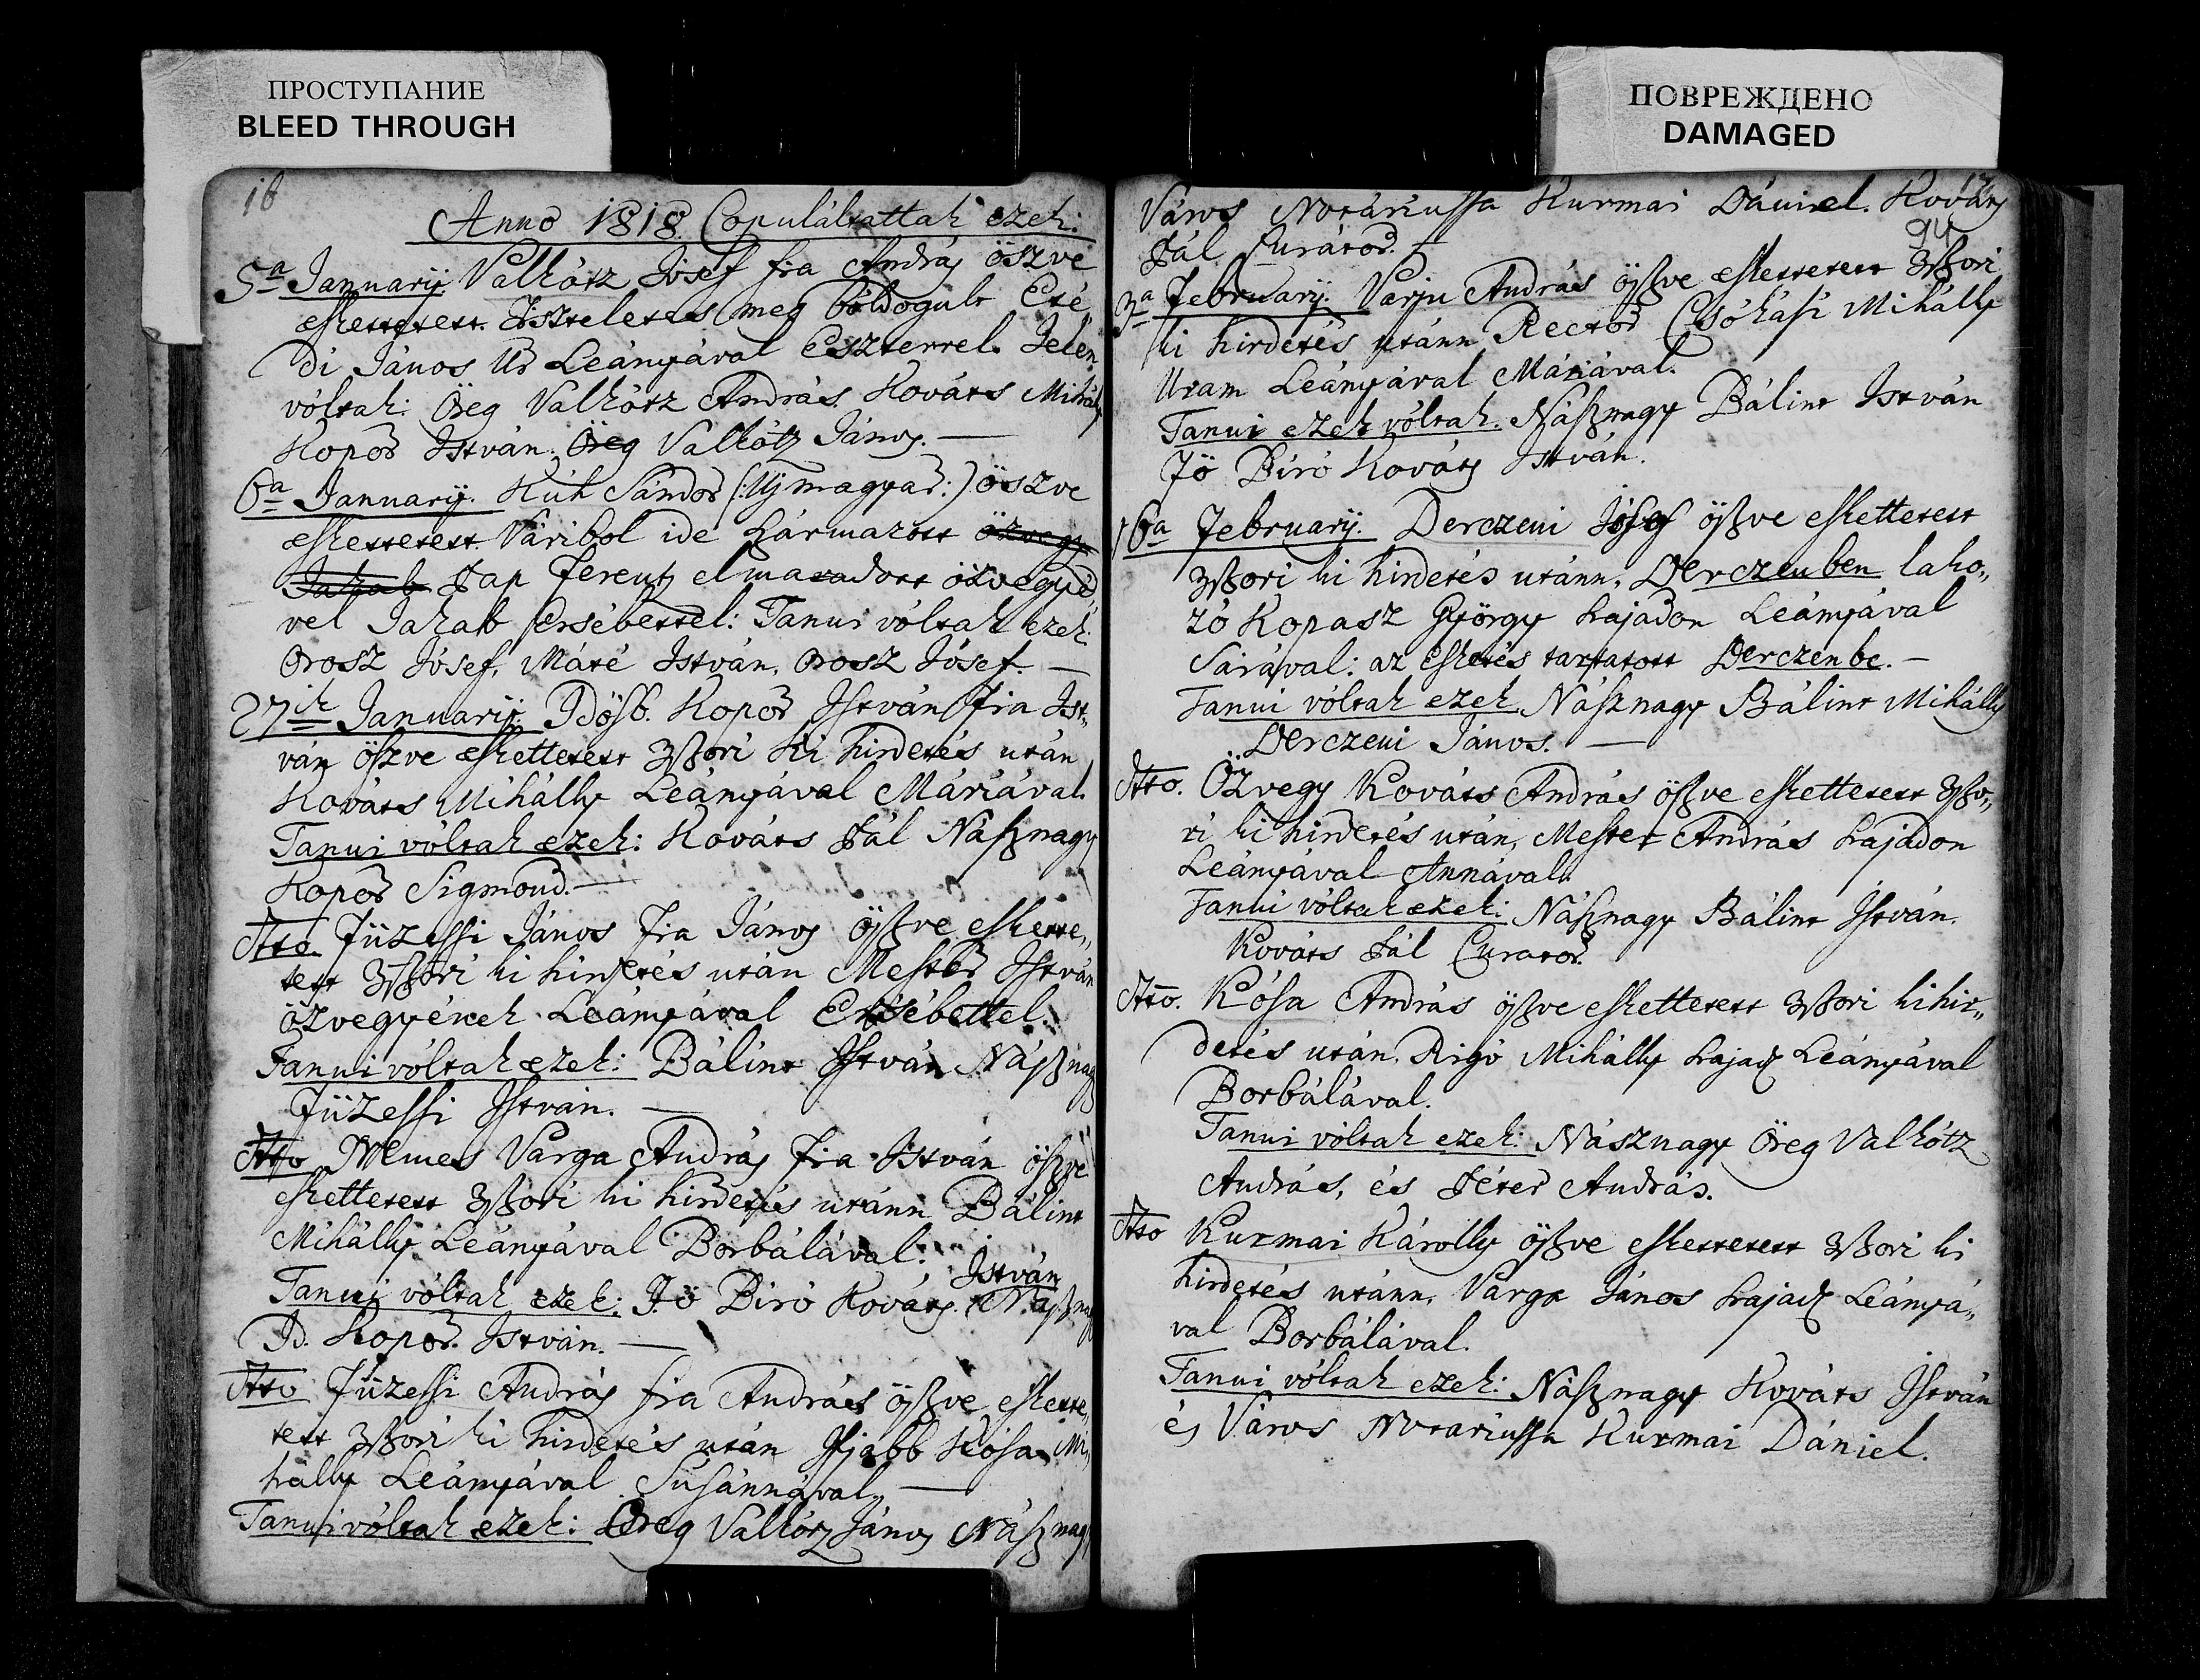 ПРОСТУПАНИЕ
BLEED THROUGH
ПОВРЕЖДЕНО
DAMAGED
16
Anno 1818 Copuláltattak ezek:
5a Januarij Valkótz Jósef fia András öszve
eskettetett Tiszteletes meg bóldogult Ecsé„
di János Ur Leányával Eszterrel. Jelen
vóltak: Öreg Valkótz András. Kováts Mihály
Kopor István. Öreg Valkótz János. —
6a Januarij. Kúh Sándor (: Uj magyar :) öszve
eskettetett Váribol ide Származott özvegy
Jakab Pap Ferentz elmaradott özvegyé„
vel Jakab Ersébettel: Tanui vóltak ezek:
Orosz Jósef, Máté István, Orosz Jósef. —
27ik Januarij. Idősb. Kopor István fia Ist„
ván öszve eskettetett 3szori ki hirdetés után
Kováts Mihálly Leányával Máriával.
Tanui vóltak ezek: Kováts Pál Násznagy
Kopor Sigmond. —
Atto. Füzessi János fia János öszve eskette„
tett 3szori ki hirdetés után Mester István
özvegyének Leányával Ersébettel.
Tanui vóltak ezek: Bálint István Násznagy
Füzessi István. —
Atto Nemes Varga András fia István öszve
eskettetett 3szori ki hirdetés utánn Bálint
Mihálly Leányával Borbálával:
István
Tanui vóltak ezek: Fö Biró Kováts Násznagy
Id. Kopor István. —
Atto Füzessi András fia András öszve eskette„
tett 3szori ki hirdetés után Ifjabb Kósa Mi„
hálly Leányával Susánnával. —
Tanui vóltak ezek: Öreg Valkótz János Násznagy
Város Notáriussa Kurmai Dániel. Kováts
94
Pál Curátor.
3a Februarij. Varju András öszve eskettetett 3szori
ki hirdetés utánn Rector Csókási Mihálly
Uram Leányával Máriával.
Tanui ezek vóltak. Násznagy Bálint István
Fö Biró Kováts István.
16a Februarij. Derczeni Jósef öszve eskettetett
3szori ki hirdetés utánn, Derczenben lako„
zó Kopasz György hajadon Leányával
Sárával: az Esketés tartatott Derczenbe. —
Tanui vóltak ezek Násznagy Bálint Mihálly
Derczeni János. —
Atto. Özvegy Kováts András öszve eskettetett 3szo„
ri ki hirdetés után, Mester András hajadon
Leányával Annával.
Tanui vóltak ezek: Násznagy Bálint István.
Kováts Pál Curator.
Atto. Kósa András öszve eskettetett 3szori ki hir„
detés után. Rigó Mihálly hajad Leányával
Borbálával.
Tanui vóltak ezek: Násznagy Öreg Valkótz
András, és Péter András.
Atto Kurmai Károlly öszve eskettetett 3szori ki
hirdetés utánn, Varga János hajad Leányá„
val Borbálával.
Tanui vóltak ezek: Násznagy Kováts István
és Város Notariussa Kurmai Dániel.